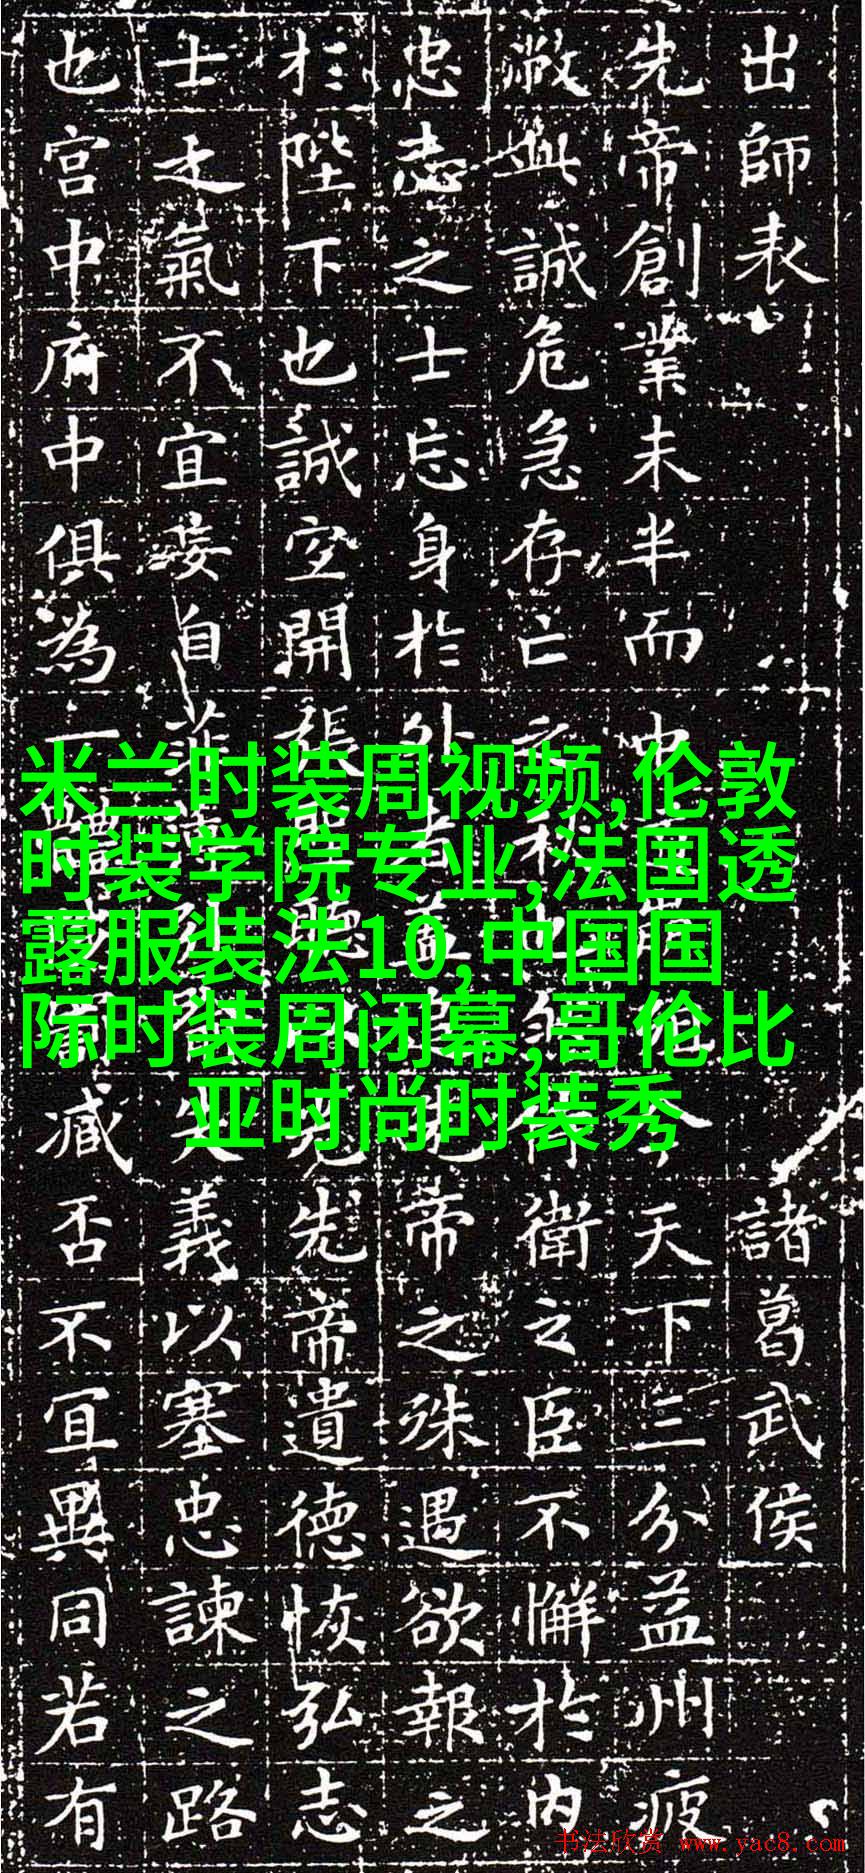 出師表 諸葛武侯
先帝創業未半而中天下三分益州疲
敝此誠危急存亡之秋衛之臣不懈於内
忠志之士忘身於外者蓋追先帝之殊遇欲報之
於陛下也誠宜開張聖聽先帝遺德恢弘志
士之氣不宜妄自菲失義以塞忠諫之路
也宮中府中俱為一體臧否不宜異同若有
米兰时装周视频,伦敦
时装学院专业,法国透
露服装法10,中国国
际时装周闭幕,哥伦比
亚时尚时装秀
书法欣赏 www.yac8.com